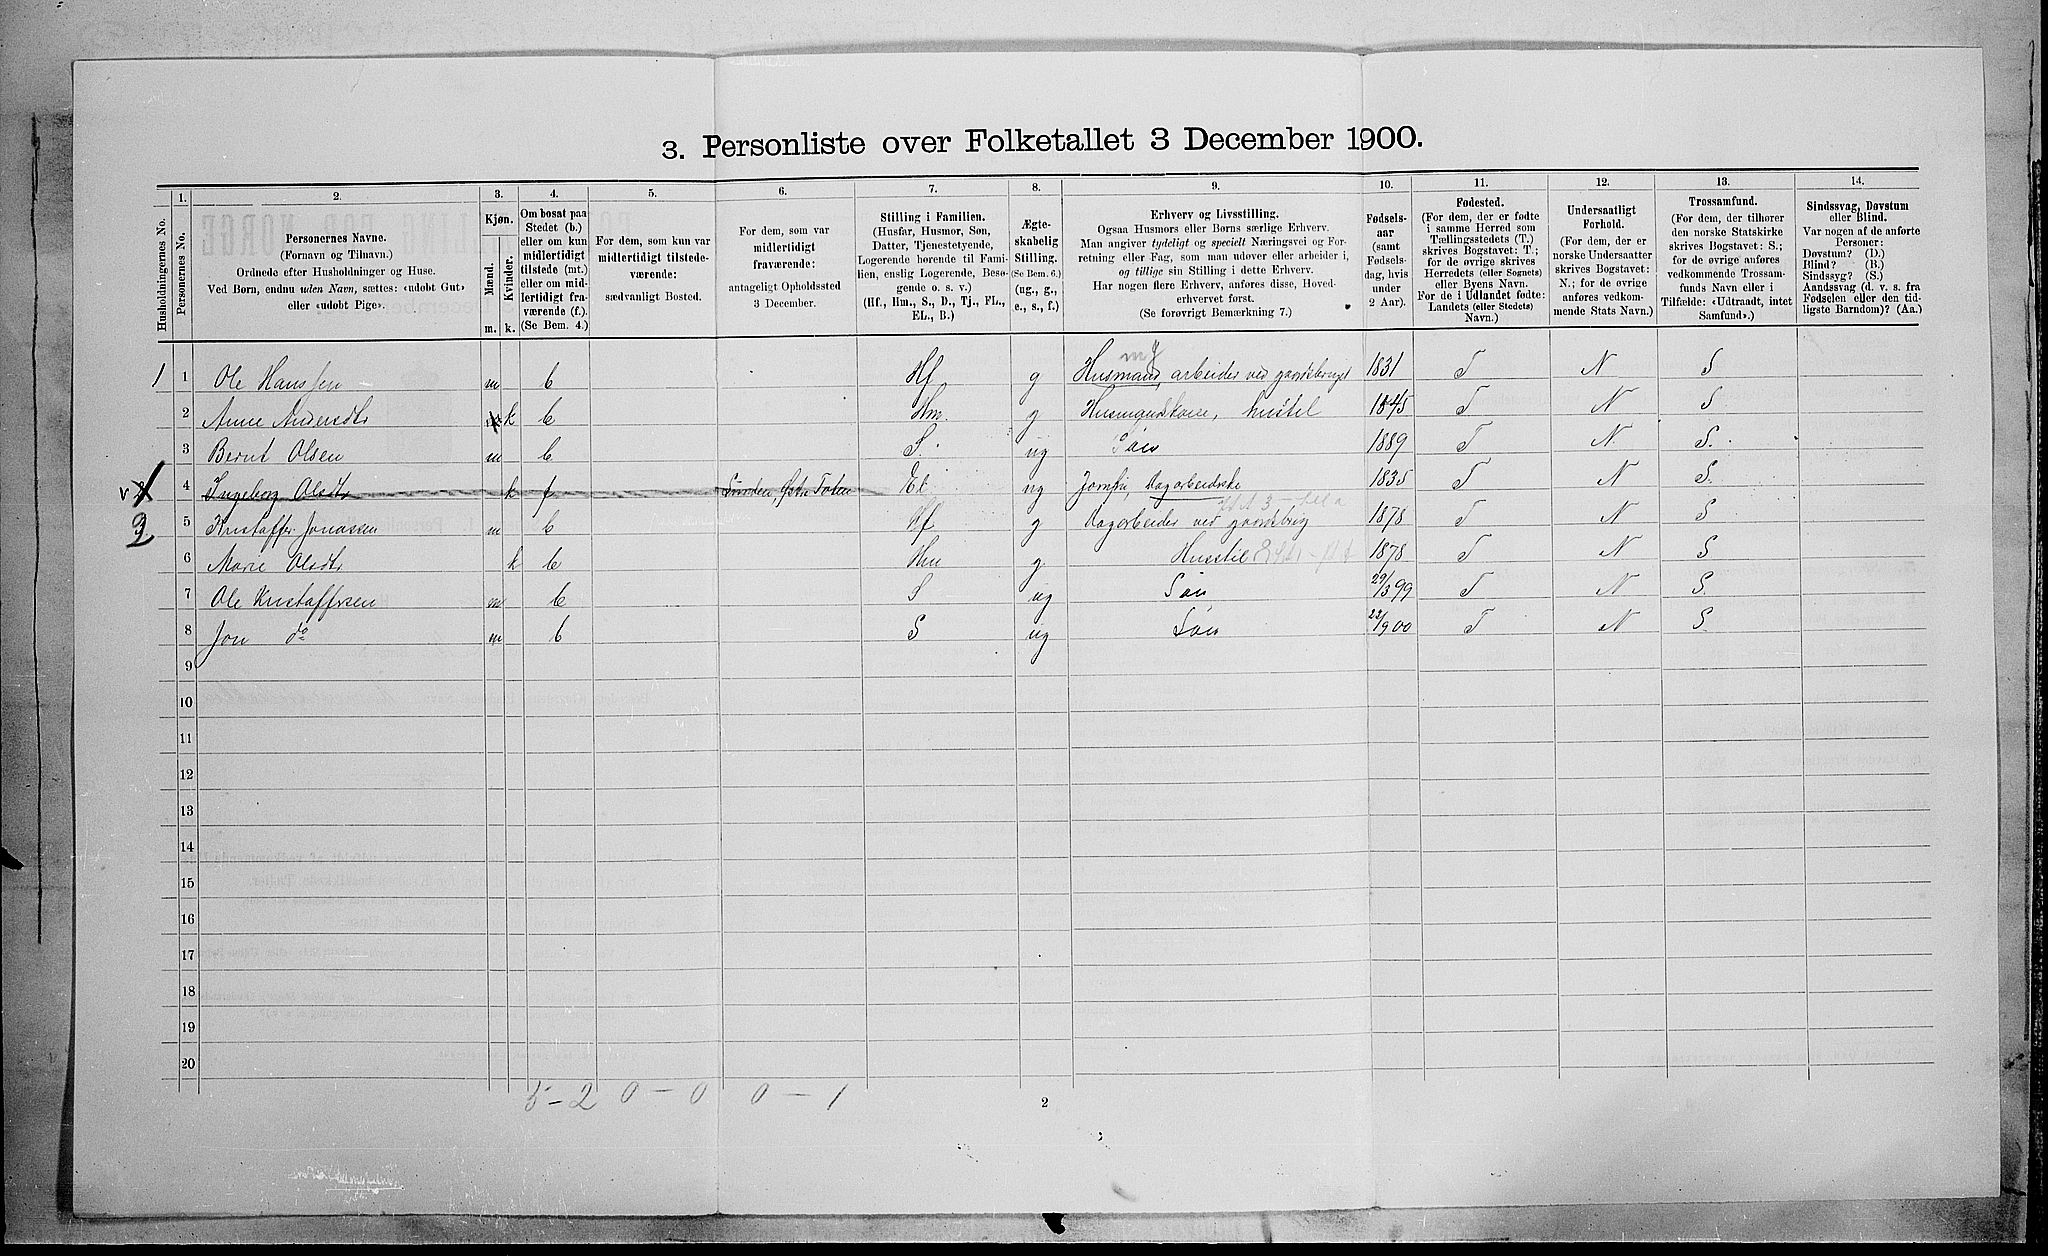 3. Personliste over Folketallet 3 December 1900.
1. 2. 3. 4. 5. 6. 7. 8. 9. 10. 11. 12. 13. 14.
Husholdningernes No.
Personernes No.
Personernes Navne.
(Fornavn og Tilnavn.)
Ordnede efter Husholdninger og Huse.
Ved Børn, endnu uden Navn, sættes: «udøbt Gut»
eller «udøbt Pige».
Kjøn.
Mænd.
Kvinder.
m. k.
Om bosat paa
Stedet (b.)
eller om kun
midlertidigt
tilstede (mt.)
eller om mid-
lertidigt fra-
værende (f.)
(Se Bem. 4.)
For dem, som kun var
midlertidigt tilstede-
værende:
sædvanligt Bosted.
For dem, som var
midlertidigt
fraværende:
antageligt Opholdssted
3 December.
Stilling i Familien.
(Husfar, Husmor, Søn,
Datter, Tjenestetyende,
Logerende hørende til Fami-
lien, enslig Logerende, Besø-
gende o. s. v.)
(Hf., Hm., S., D., Tj., FL.,
EL., B.)
Ægte-
skabelig
Stilling.
(Se Bem. 6.)
(ug., g.,
e., s., f.)
Erhverv og Livsstilling.
Ogsaa Husmors eller Børns særlige Erhverv.
Man angiver tydeligt og specielt Næringsvei og For-
retning eller Fag, som man udøver eller arbeider i,
og tillige sin Stilling i dette Erhverv.
Har nogen flere Erhverv, anføres disse, Hoved-
erhvervet først.
(Se forøvrigt Bemærkning 7.)
Fødsels-
aar
(samt
Fødsels-
dag, hvis
under
2 Aar).
Fødested.
(For dem, der er fødte
i samme Herred som
Tællingsstedets (T.)
skrives Bogstavet: T.;
for de øvrige skrives
Herredets (eller Sognets)
eller Byens Navn.
For de i Udlandet fødte:
Landets (eller Stedets)
Navn.)
Undersaatligt
Forhold.
(For dem, der er
norske Undersaatter
skrives Bogstavet:
N.; for de øvrige
anføres vedkom-
mende Stats Navn.)
Trossamfund.
(For dem, der tilhører
den norske Statskirke
skrives Bogstavet: S.;
for de øvrige anføres
vedkommende Trossam-
funds Navn eller i
Tilfælde: «Udtraadt, intet
Samfund».)
Sindssvag, Døvstum
eller Blind.
Var nogen af de anførte
Personer:
Døvstum? (D.)
Blind? (B.)
Sindssyg? (S.)
Aandssvag (d. v. s. fra
Fødselen eller den tid-
ligste Barndom)? (Aa.)
1 1 Ole Hanssen m b Hf g Husmand, arbeider ved gaardsbruget 1831 T N S
2 Anne Andersdtr k b Hm g Husmandskone, hustel 1845 T N S
3 Bernt Olsen m b S. ug Søn 1889 T N S.
4 Ingeborg Olsdtr k f Sunden Østre Toten El ug Jomfru, Dagarbeiderske 1835 T N S.
2 5 Kristoffer Jonassen m b Hf g Dagarbeider ved gaardsbrug 1878 T N S
6 Marie Olsdtr k b Hm g Husstel 1878 T N S
7 Ole Kristoffersen m b S ug Søn 29/3 99 T N S.
8 Jon do m b S ug Søn 22/9 00 T N S.
9
10
11
12
13
14
15
16
17
18
19
20
5 - 2 0 - 0 0 - 1
2